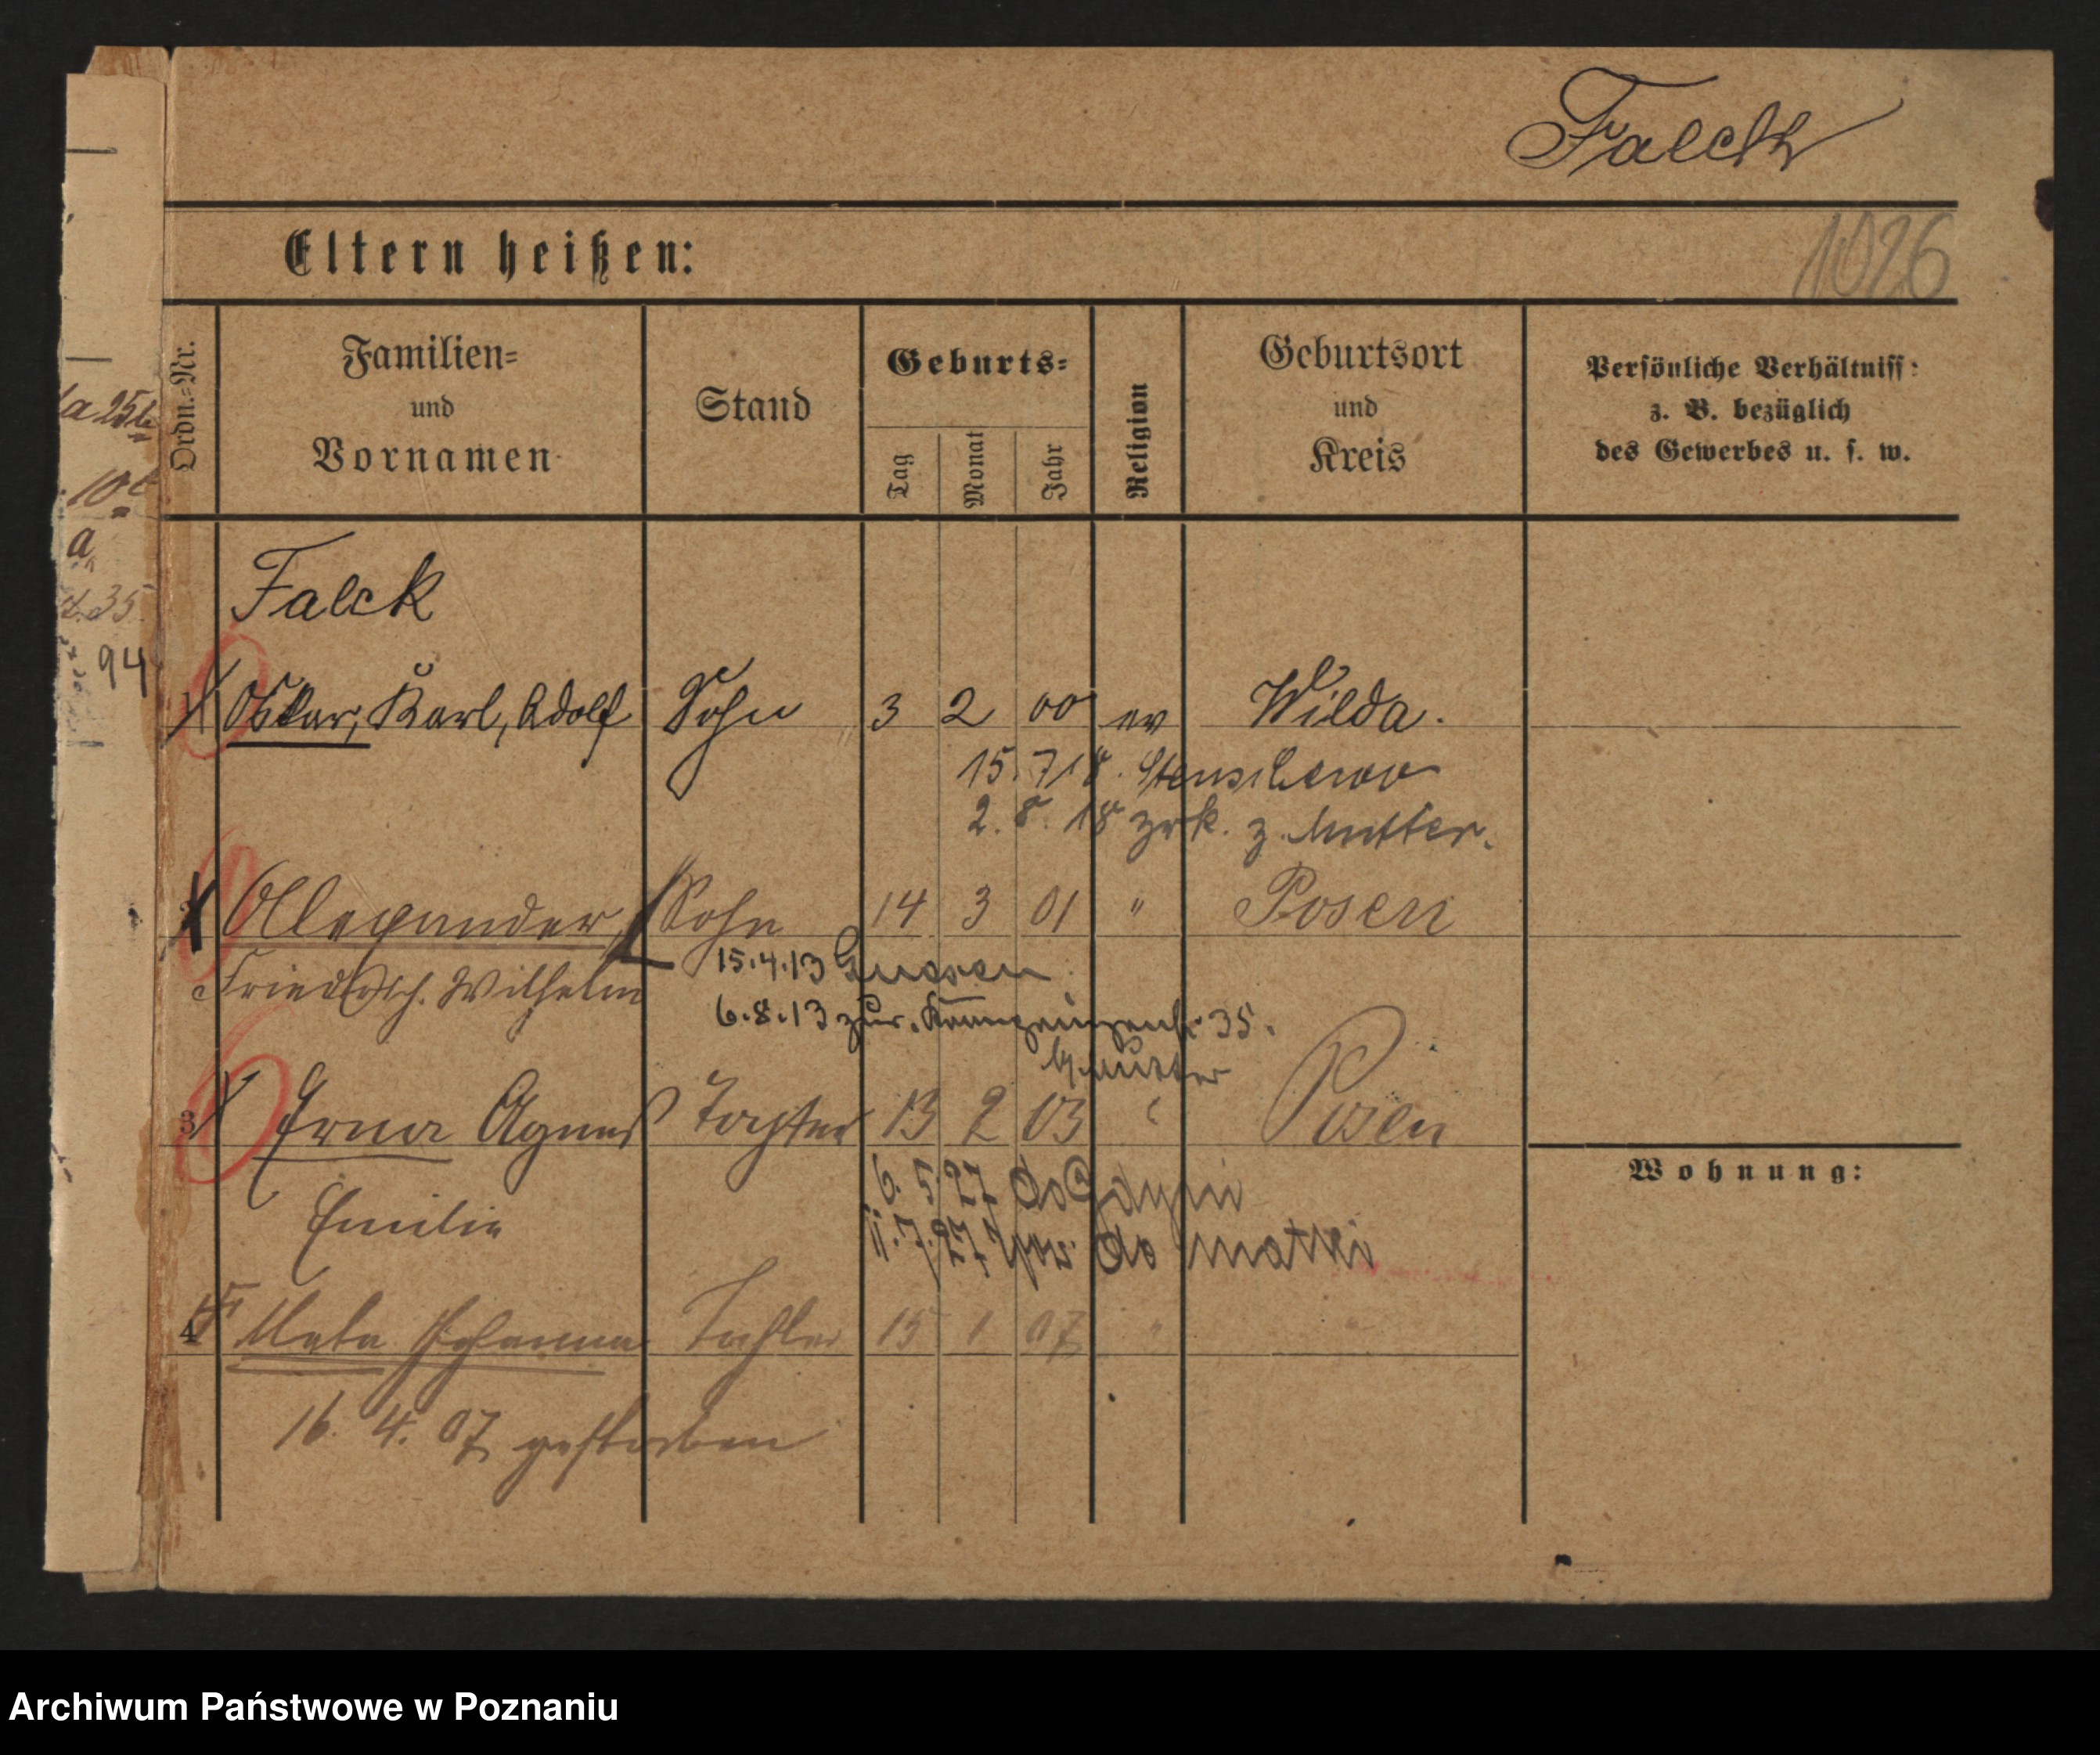 Falck
Eltern heißen:
1026
Ordn.=Nr.
Familien=
und
Vornamen
Stand
Geburts=
Tag
Monat
Jahr
Religion
Geburtsort
und
Kreis
Persönliche Verhältniss:
z. B. bezüglich
des Gewerbes u. s. w.
a 25b
10b
a
35
94
Falck
1 Oskar, Karl, Adolf Sohn 3 2 00 ev Wilda.
15.7.18. Stenschewo
2.8.18 zrk. z. Mutter.
Alexander Sohn 14 3 01 " Posen
15.4.13 Gnesen
Friedrich Wilhelm
6.8.13 zur. 35.
Mutter
3 Erna Agnes Tochter 13 2 03 " Posen
Wohnung:
6.5.27 do Gdyni
Emilie
11.7.27 do matki
4 Meta Johanna Tochter 15 1 07 " "
16.4.07 gestorben
Archiwum Państwowe w Poznaniu